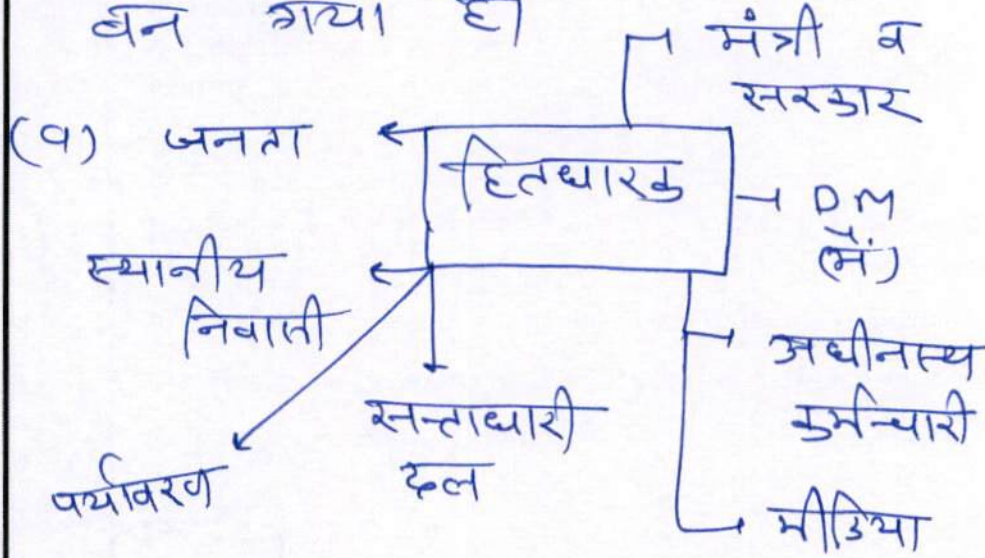 बन गया है।
मंत्री व
सरकार
(a) जनता
हितधारक
DM
(मैं)
स्थानीय
निवासी
अधीनस्थ
कर्मचारी
सत्ताधारी
दल
पर्यावरण
मीडिया